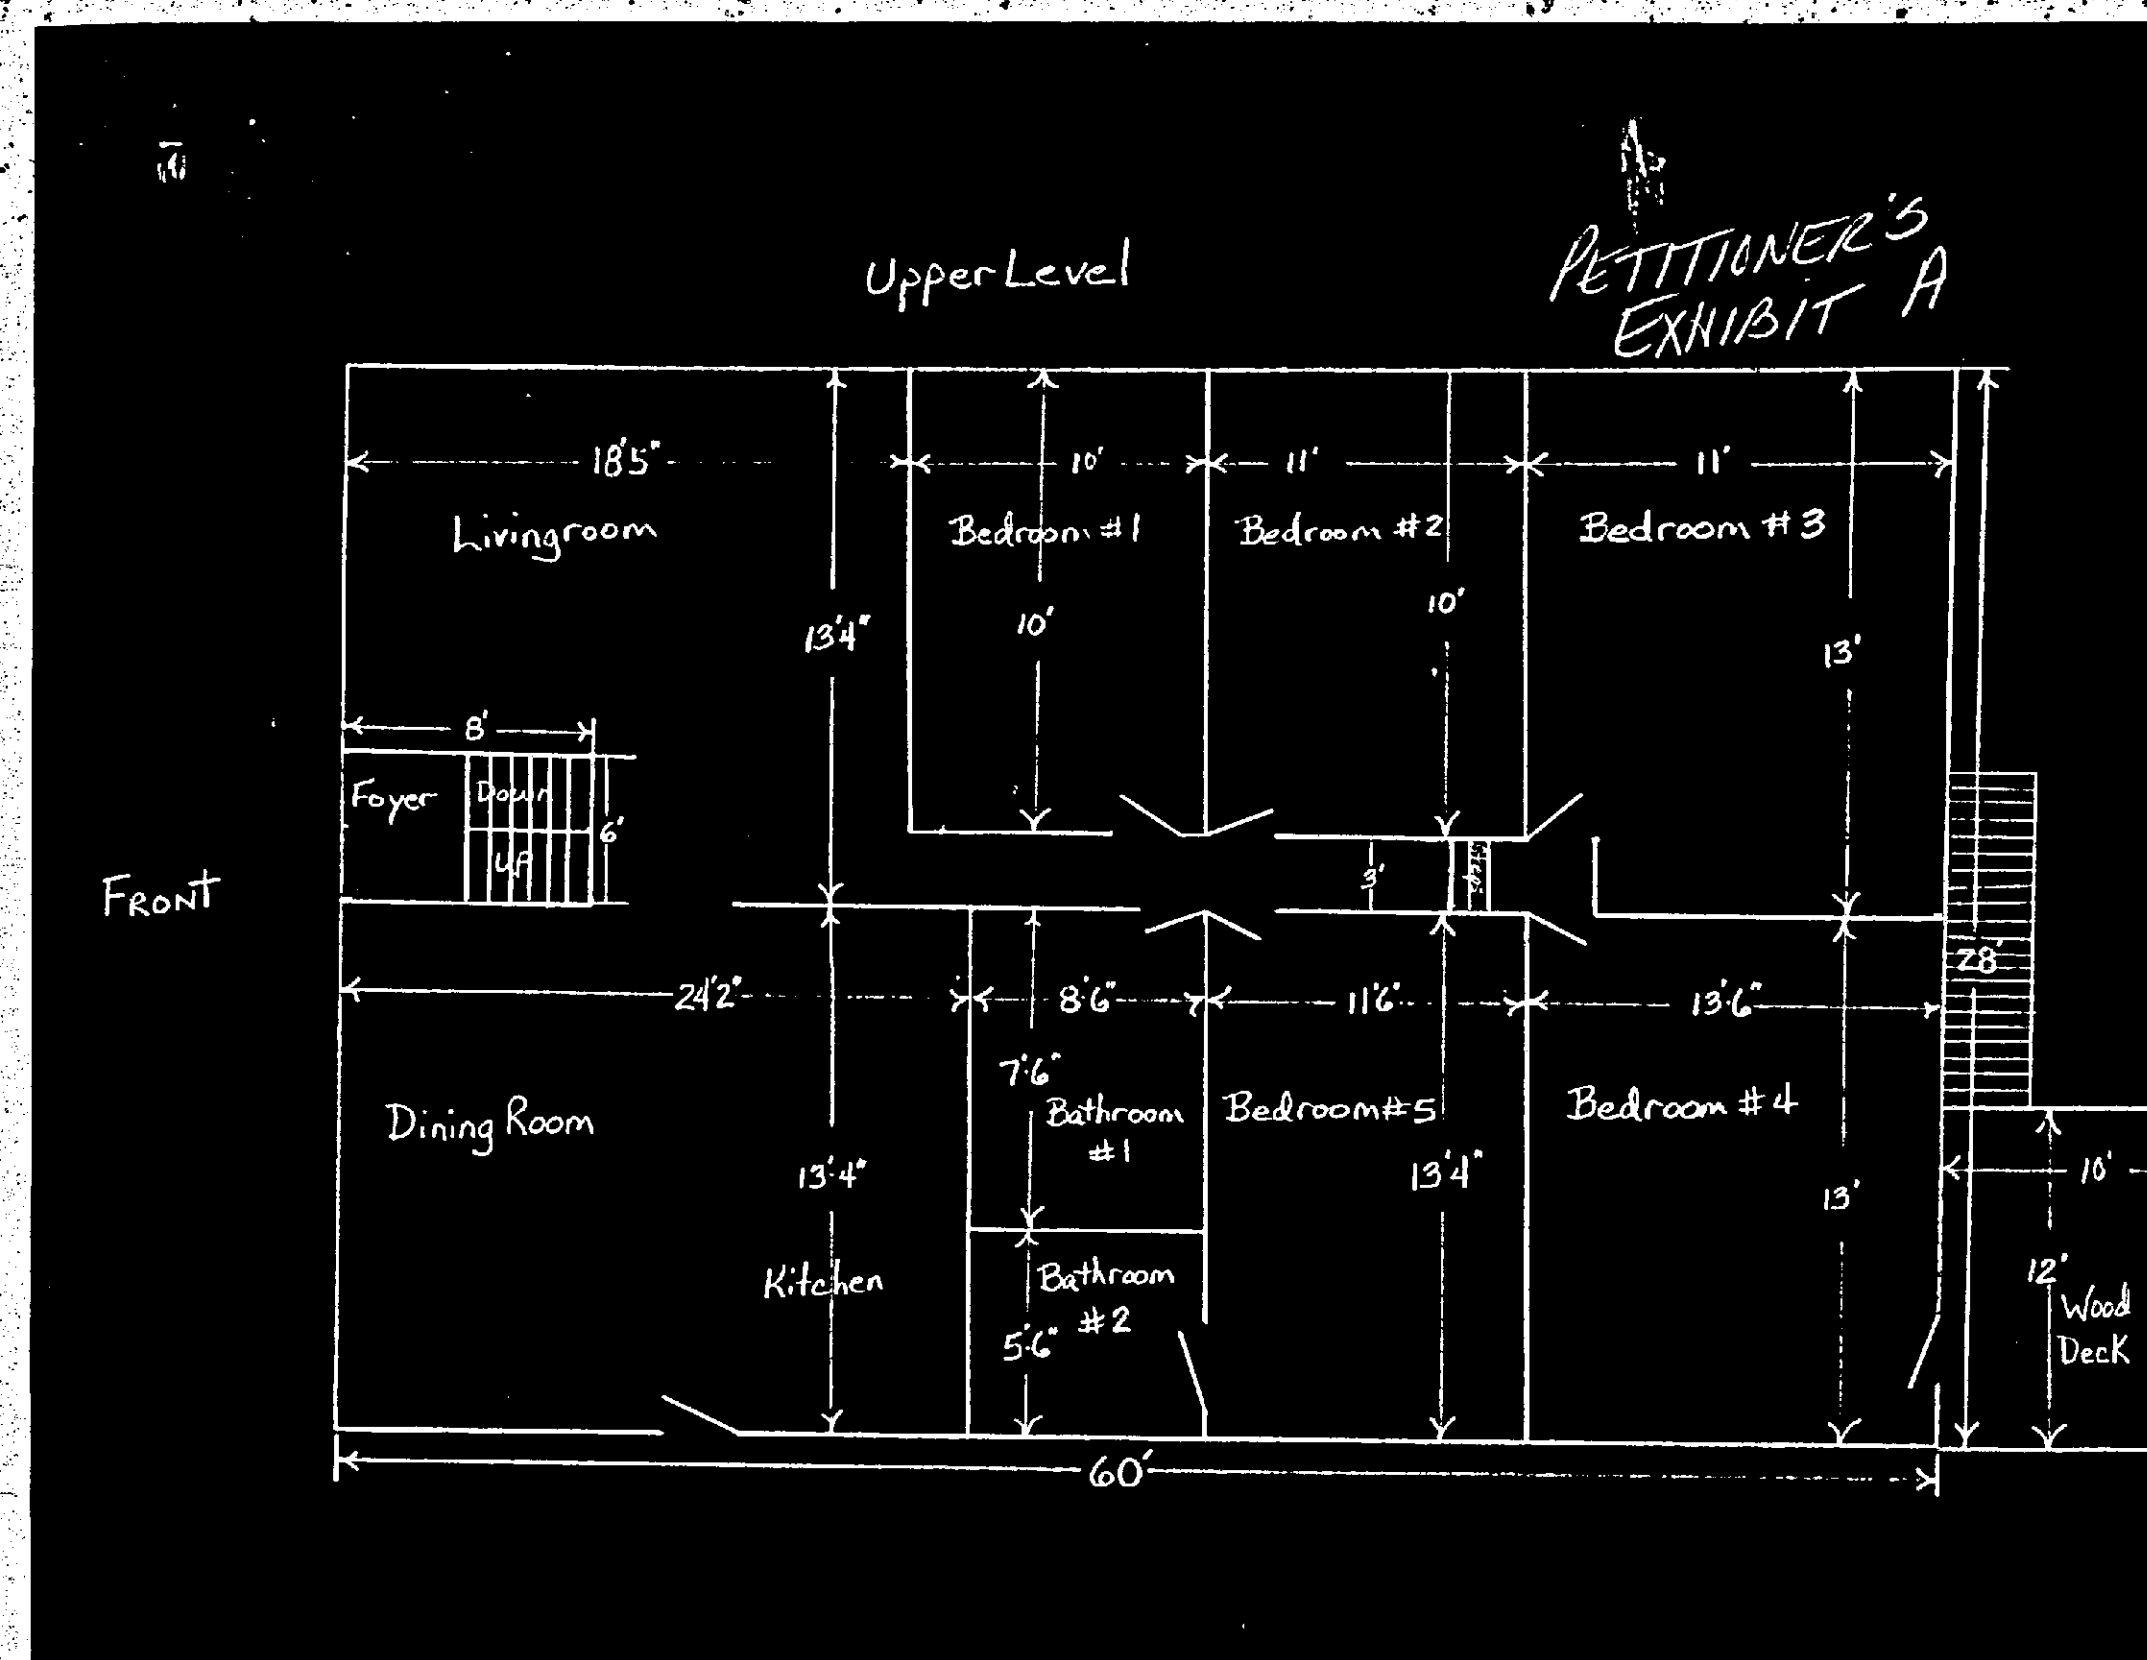 Upper Level
PETITIONER'S
EXHIBIT A
18'5"
10'
11'
11'
Livingroom
Bedroom #1
Bedroom #2
Bedroom #3
13'4"
10'
10'
13'
8'
Foyer
Down
6'
UP
3'
FRONT
28'
24'2"
8'6"
11'6"
13'6"
7'6"
Dining Room
Bathroom
#1
Bedroom #5
Bedroom #4
13'4"
13'4"
13'
10'
Kitchen
Bathroom
#2
5'6"
12'
Wood
Deck
60'